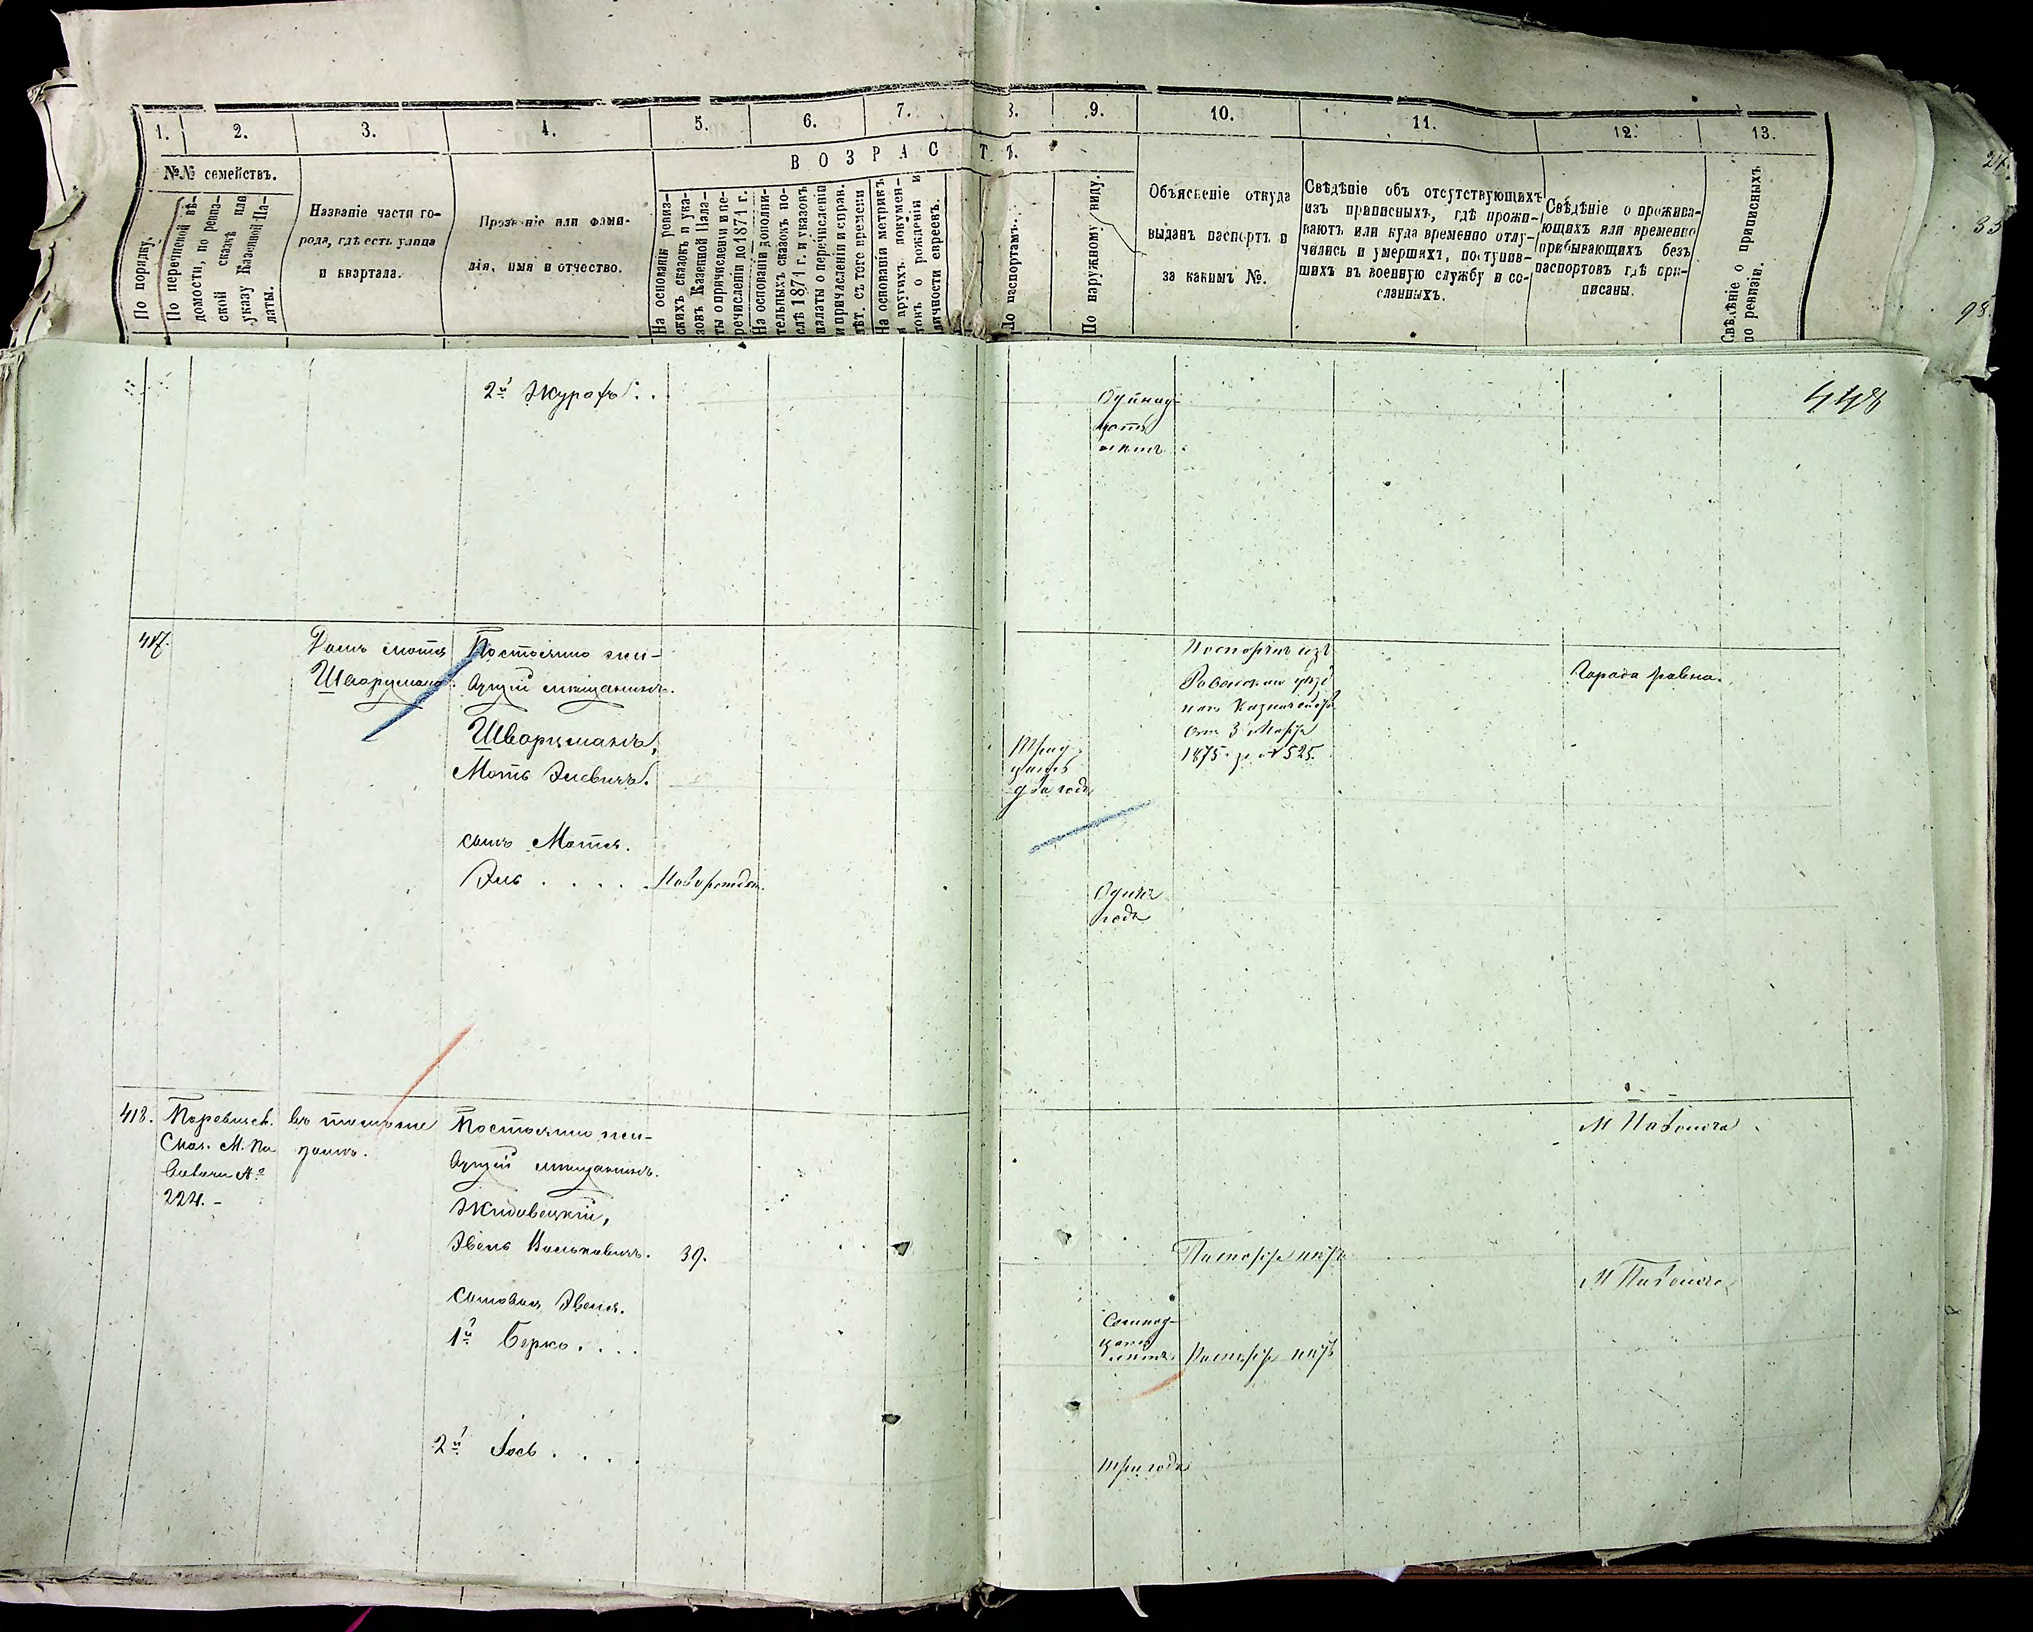 1. 2. 3. 4. 5. 6. 7. 8. 9. 10. 11. 12. 13.
ВОЗРАСТЪ.
№№ семействъ.
По порядку.
По перечневой вѣ-
домости, по ревиз-
ской сказкѣ или
указу Казенной Па-
латы.
Названіе части го-
рода, гдѣ есть улица
и квартала.
Прозваніе или фами-
лія, имя и отчество.
На основаніи ревиз-
скихъ сказокъ и ука-
зовъ Казенной Пала-
ты о причисленіи и пе-
речисленіи до 1871 г.
На основаніи дополни-
тельныхъ сказокъ по-
слѣ 1871 г. и указовъ
палаты о перечисленіи
и причисленіи и справ.
лѣт. съ того времени
На основаніи метрикъ
и другихъ докумен-
товъ о рожденіи и
личности евреевъ.
По паспортамъ.
По наружному виду.
Объясненіе откуда
выданъ паспортъ и
за какимъ №.
Свѣдѣніе объ отсутствующихъ
изъ приписныхъ, гдѣ прожи-
ваютъ или куда временно отлу-
чились и умершихъ, поступив-
шихъ въ военную службу и со-
сланныхъ.
Свѣдѣніе о прожива-
ющихъ или временно
прибывающихъ безъ
паспортовъ гдѣ при-
писаны.
Свѣдѣніе о приписныхъ
по ревизіи.
448
2й Журафъ . .
Одинад-
цать
лѣтъ
417.
Домъ Мотя
Шварцмана.
Постоянно жи-
вущій мѣщанинъ.
Шварцманъ,
Моть Элевичъ.
Трид-
цать
два года
Паспортъ изъ
Ровенскаго уѣзд
наго Казначейст
отъ 3 Марта
1875 г. № 525.
Города Ровна.
сынъ Мотя.
Эль . . . . . Новорожден.
Одинъ
годъ
418.
Ревизск.
Сказ. М. По
№
224. -
въ томъ же
домѣ.
Постоянно жи-
вущій мѣщанинъ.
Жидовецкій,
Эвель Волковичъ. 39.
Паспорта нѣтъ
М
сыновья Эвеля.
1й Берко . . . .
Семнад-
цать
лѣтъ
Паспорта нѣтъ
М
2й Іось . . . .
три года